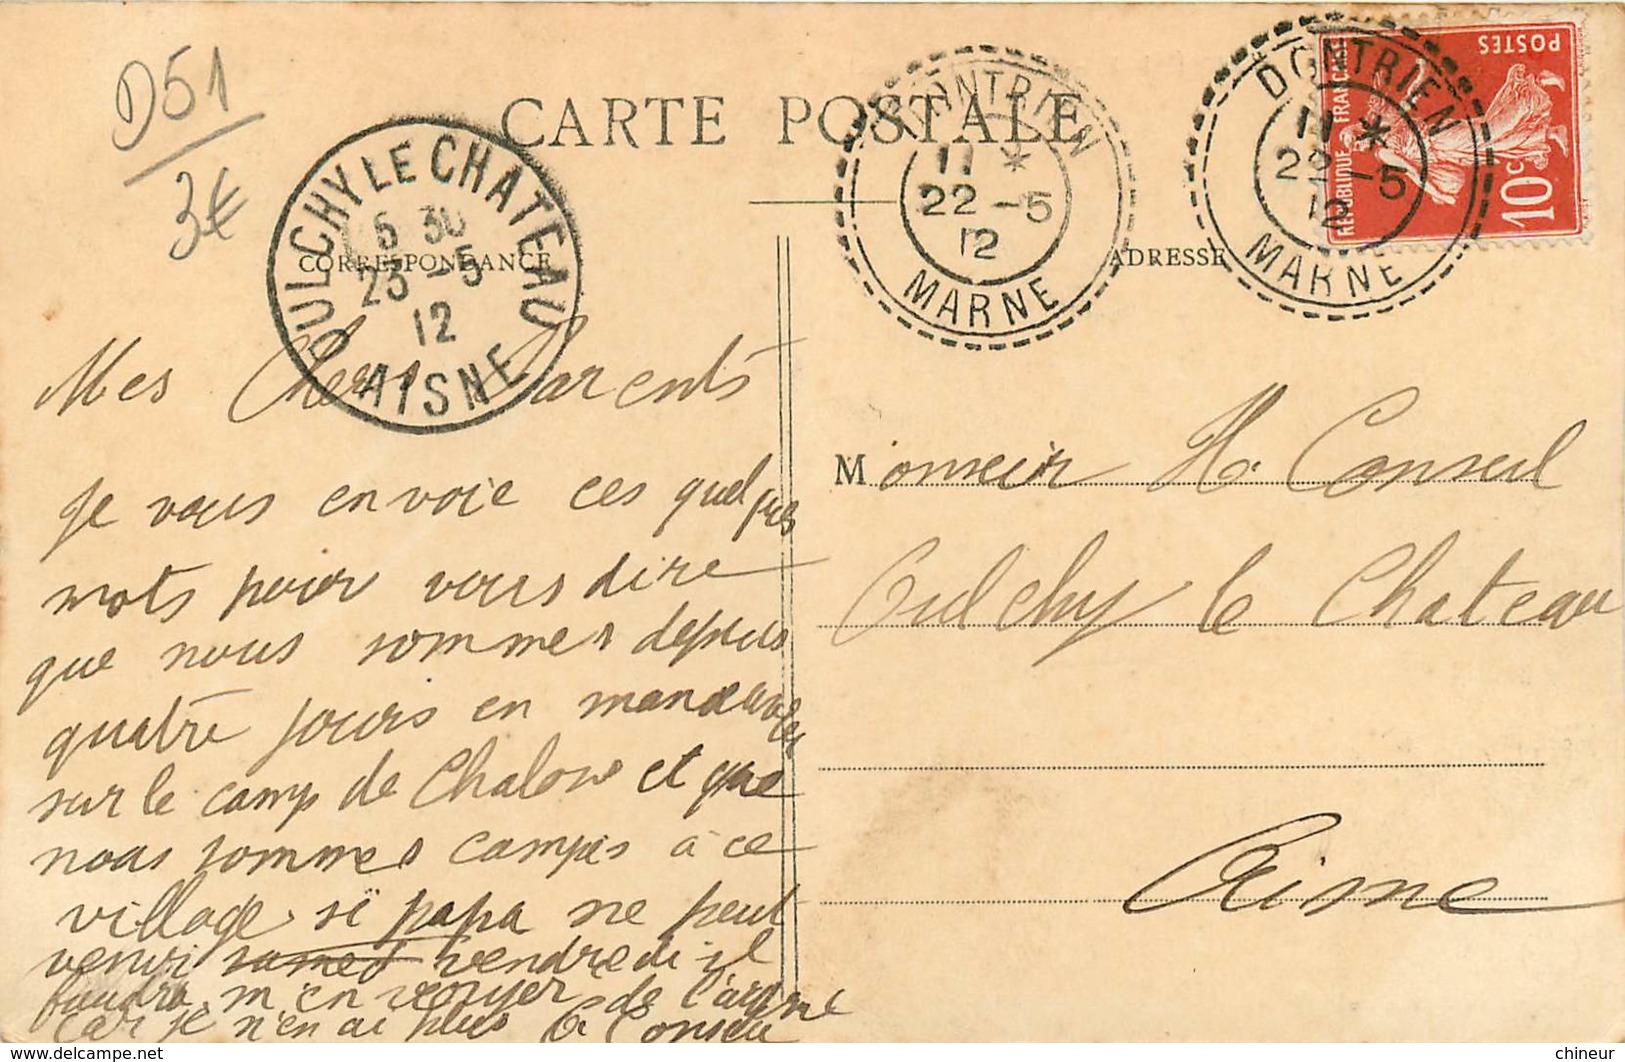 D51
3€
CARTE POSTALE
OULCHY LE CHATEAU
6 30
23 -5
12
AISNE
DONTRIEN
11 *
22 -5
12
MARNE
DONTRIEN
11 *
22 -5
12
MARNE
REPUBLIQUE FRANÇAISE
POSTES
10c
CORRESPONDANCE
ADRESSE
Mes Chers Parents
je vous envoie ces quelques
mots pour vous dire
que nous sommes depuis
quatre jours en manoeuvres
sur le camp de Chalons et que
nous sommes campés à ce
village. si papa ne peut
venir samed vendredi il
faudra m'en voyer de l'argent
car je n'en ai plus G. Conseil
Monsieur H. Conseil
Oulchy le Chateau
Aisne
delcampe.net
chineur